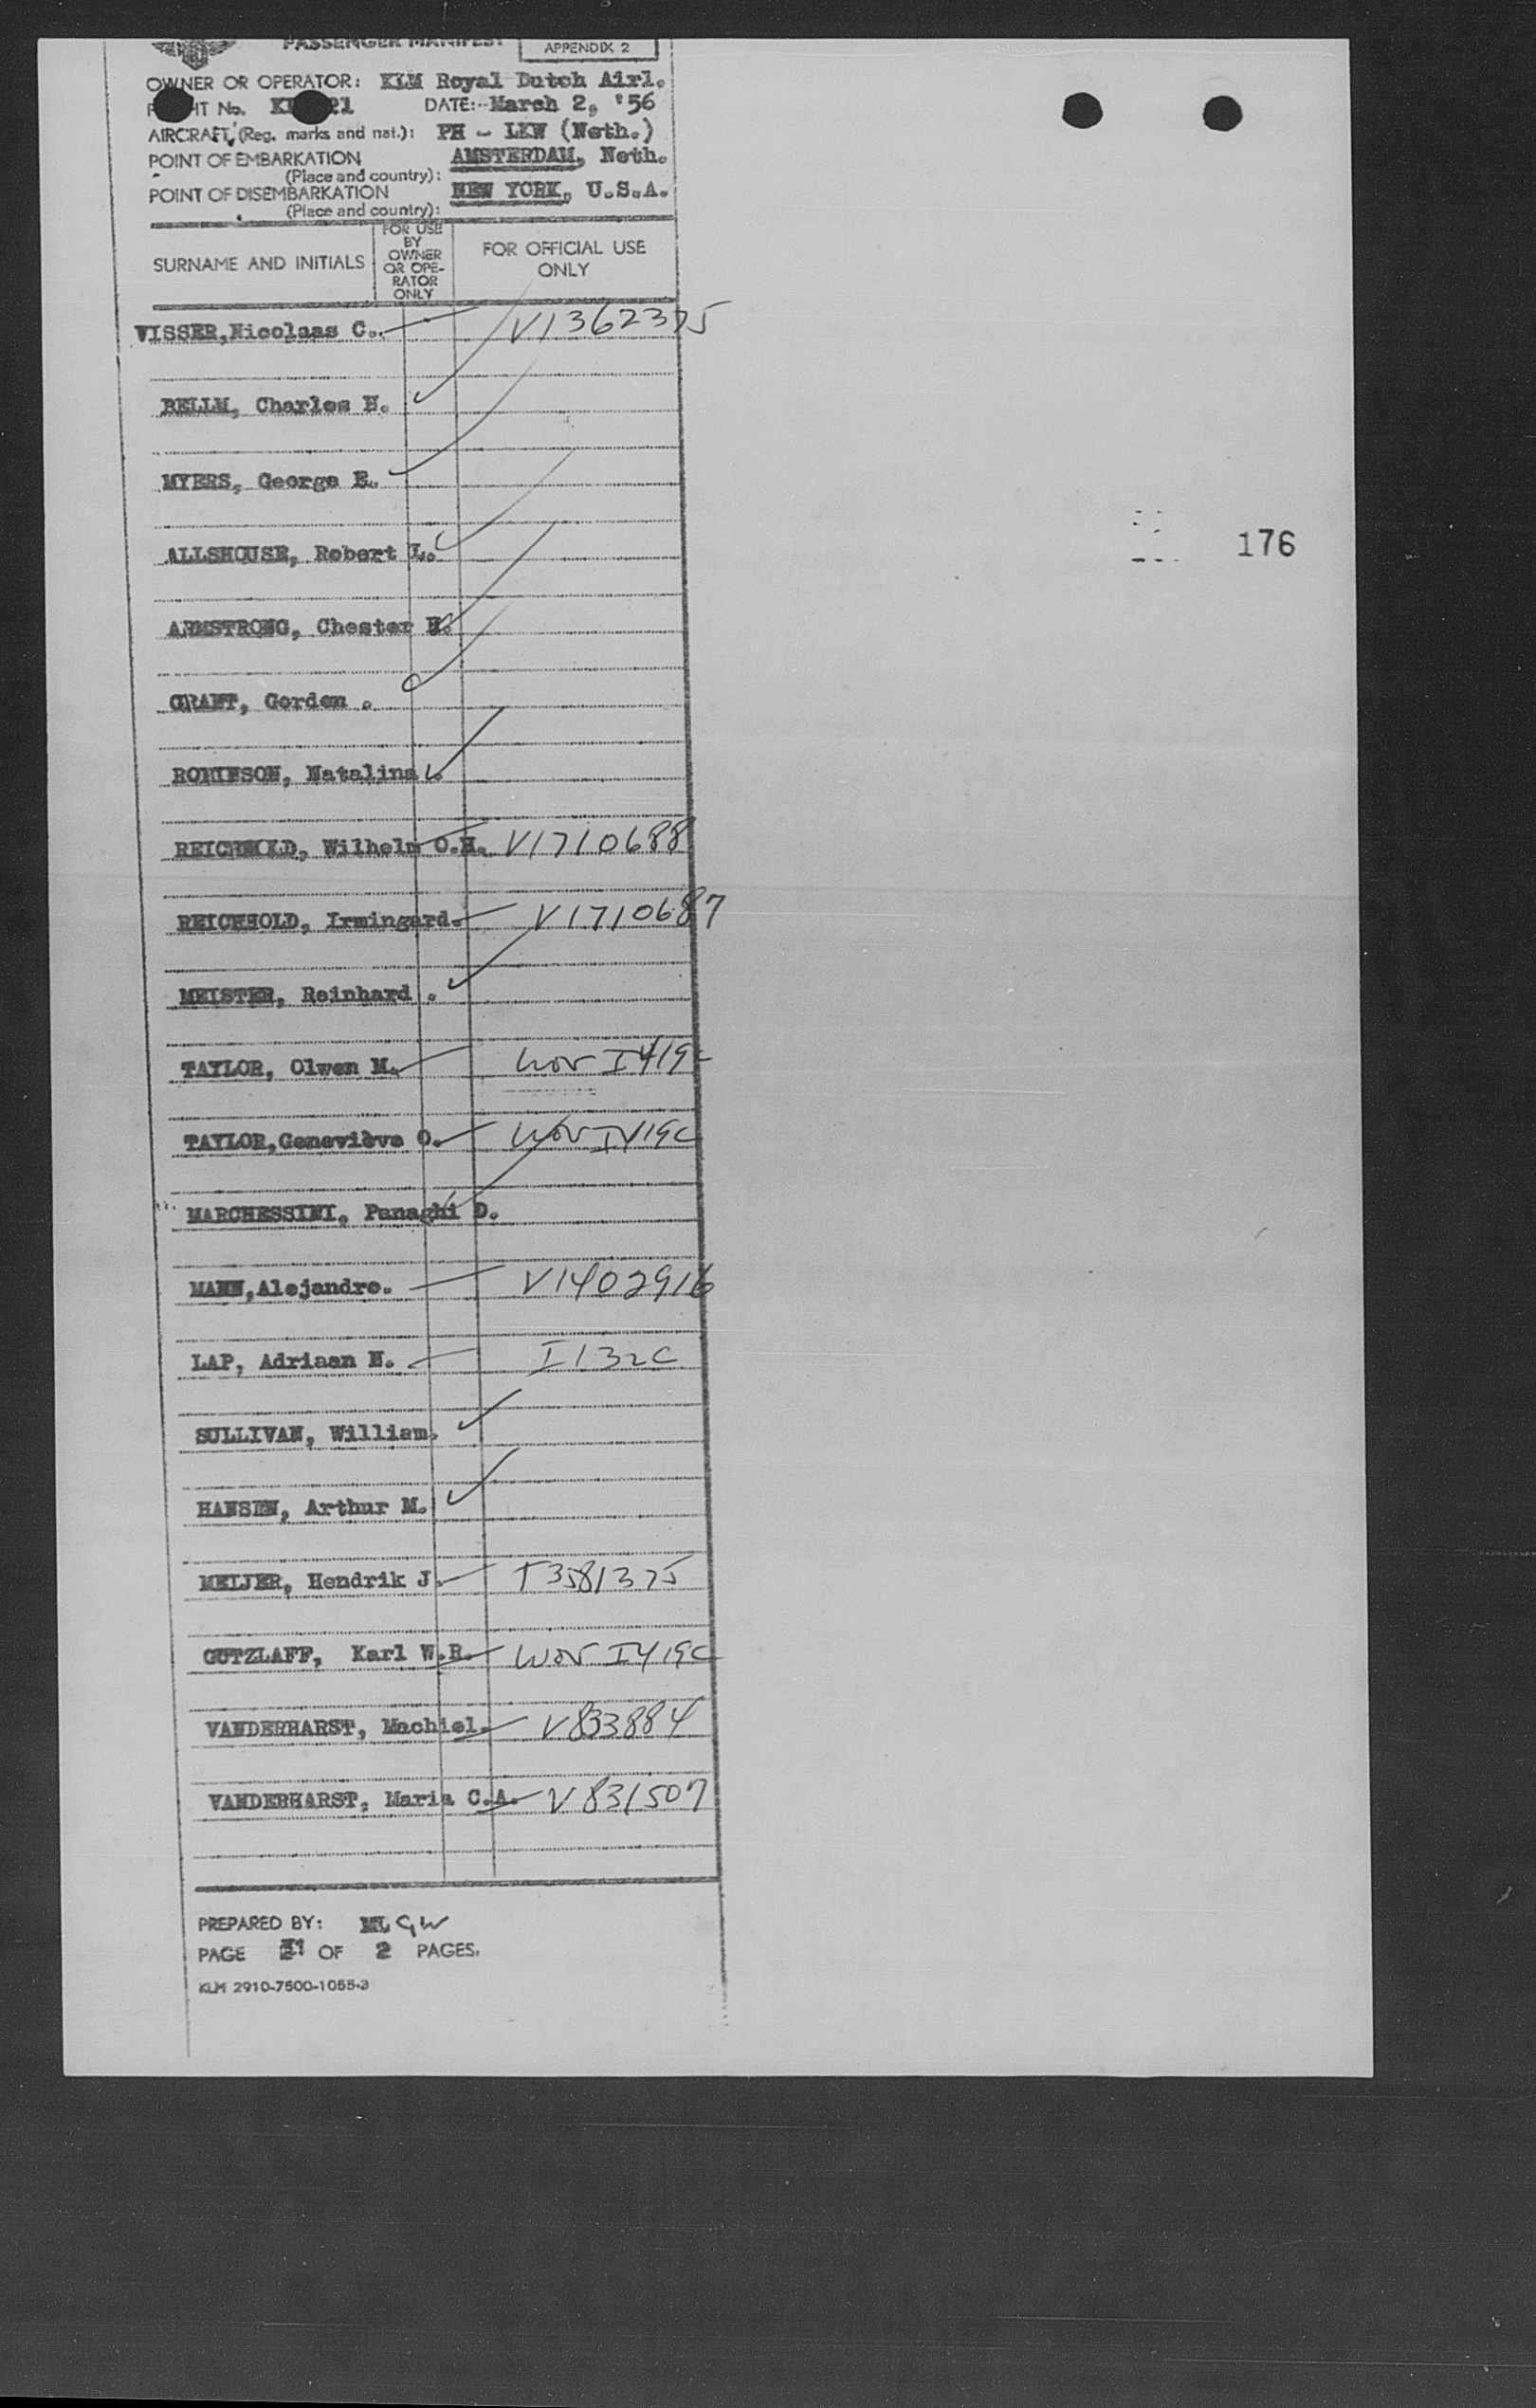 PASSENGER MANIFEST
APPENDIX 2
OWNER OR OPERATOR: KLM Royal Dutch Airl.
No. 21 DATE: March 2, '56
AIRCRAFT (Reg. marks and nat.): PH - LKW (Neth.)
POINT OF EMBARKATION AMSTERDAM, Neth.
(Place and country):
POINT OF DISEMBARKATION NEW YORK, U.S.A.
(Place and country):
SURNAME AND INITIALS
FOR USE BY OWNER OR OPE- RATOR ONLY
FOR OFFICIAL USE ONLY
VISSER, Nicolaas C. V1362375
BELLM, Charles H.
MYERS, George E.
176
ALLSHOUSE, Robert L.
ARMSTRONG, Chester
Gordon .
ROBINSON, Natalina
REICHHOLD, Wilhelm O.H. V1710688
REICHHOLD, Irmingard. V1710687
MEISTER, Reinhard .
TAYLOR, Olwen M.
TAYLOR, Geneviève O.
MARCHESSINI, Panaghi D.
MANN, Alejandro. V1402916
LAP, Adriaan H. I132C
SULLIVAN, William.
HANSEN, Arthur M.
MEIJER, Hendrik J. T3581375
GUTZLAFF, Karl W.R.
VANDERHARST, Machiel. V833884
VANDERHARST, Maria C.A. V831507
PREPARED BY: GW
PAGE OF 2 PAGES.
KLM 2910-7500-1055-3